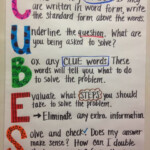 C
are written in word form, write
the standard form above the words.
Underline the question. What are
you being asked to solve?
Box any CLUE words. These
words will tell you what to do
to solve the problem.
Evaluate what STEPS you should
take to solve the problem.
→ Eliminate any extra information.
Solve and check! Does my answer
make sense? How can I double